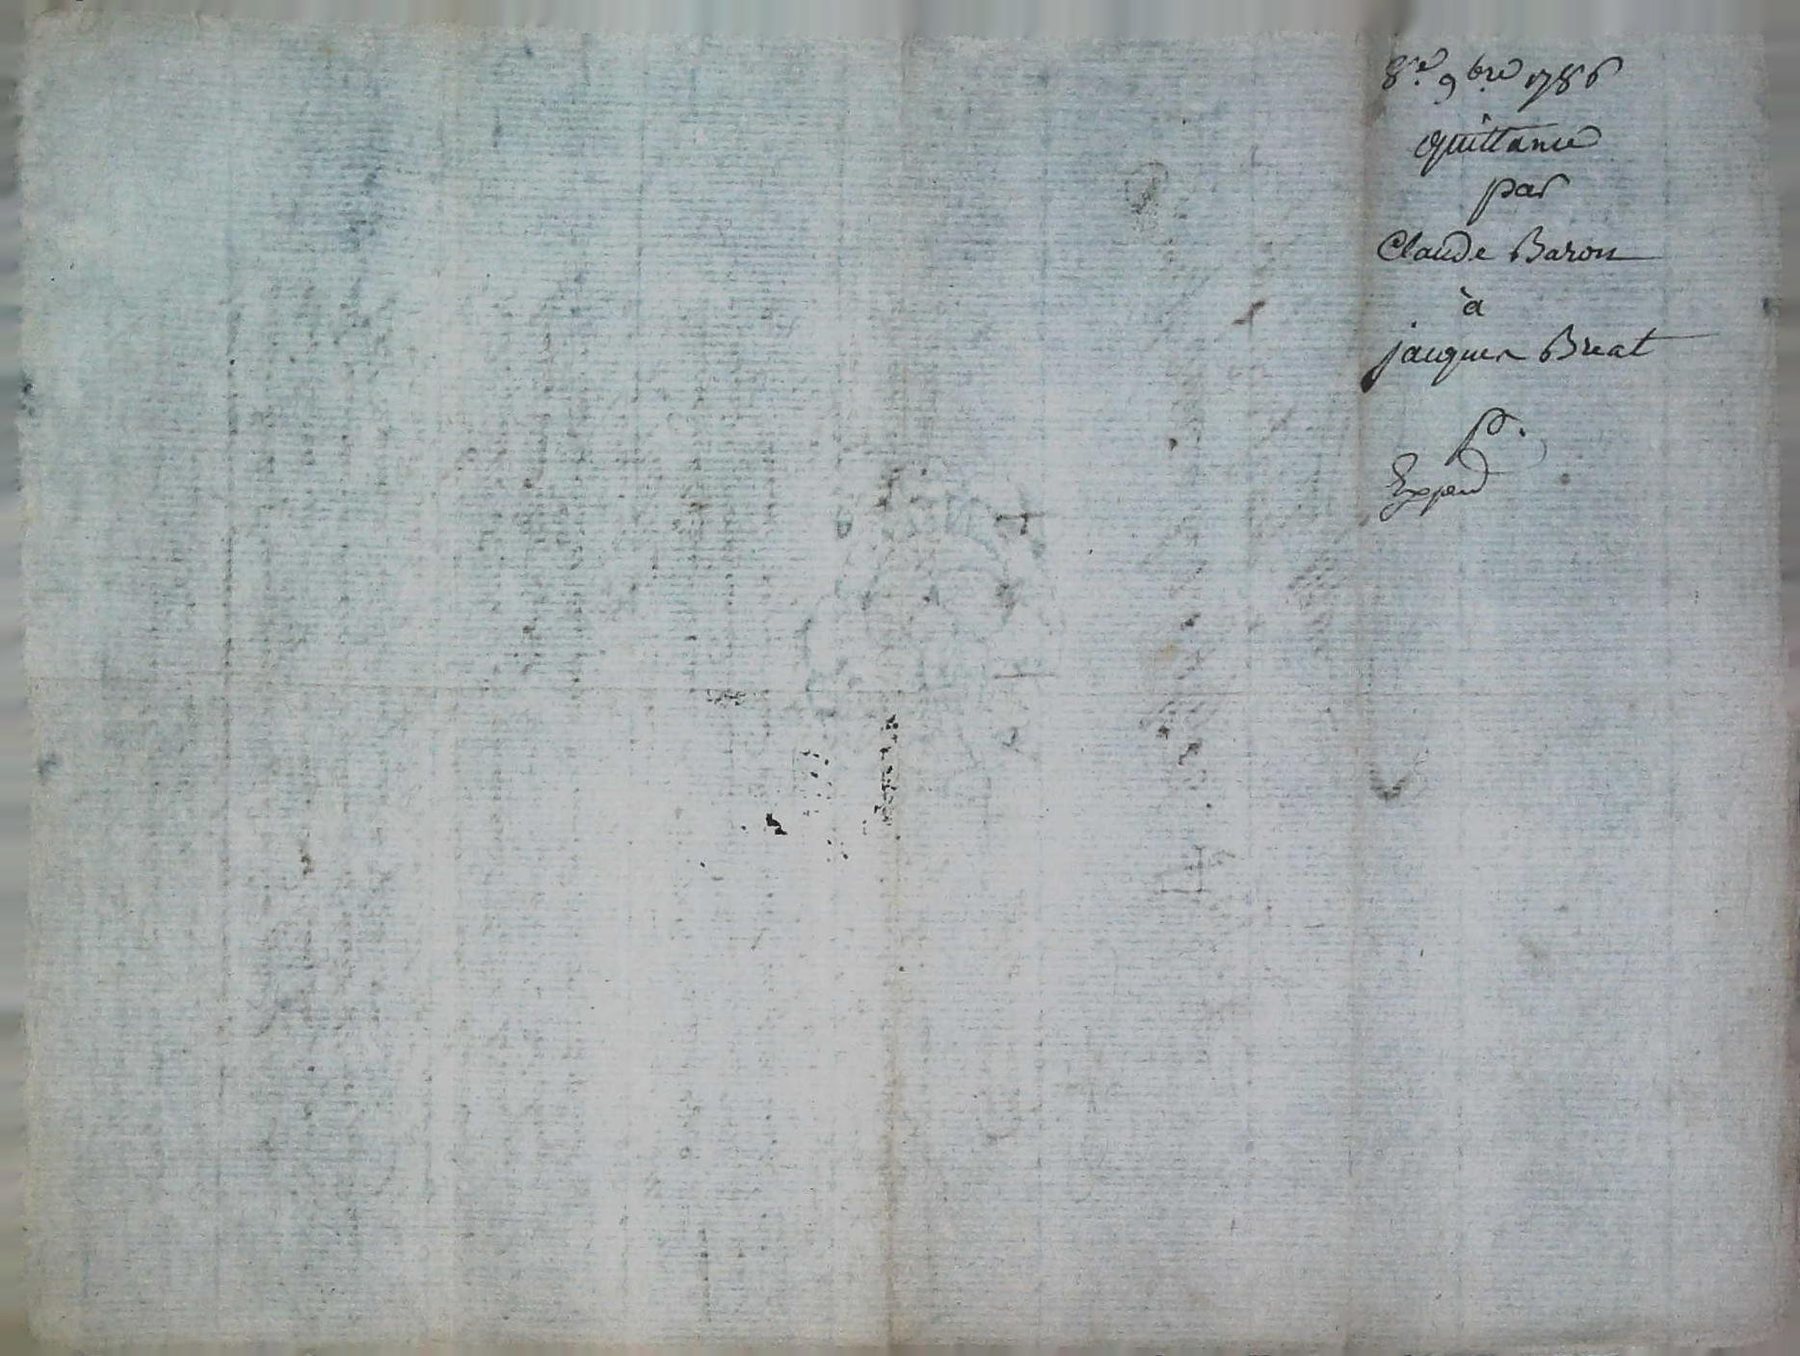 8e. 9bre 1786
quittance
par
Claude Baron
à
jacques Breat
p.
Exped